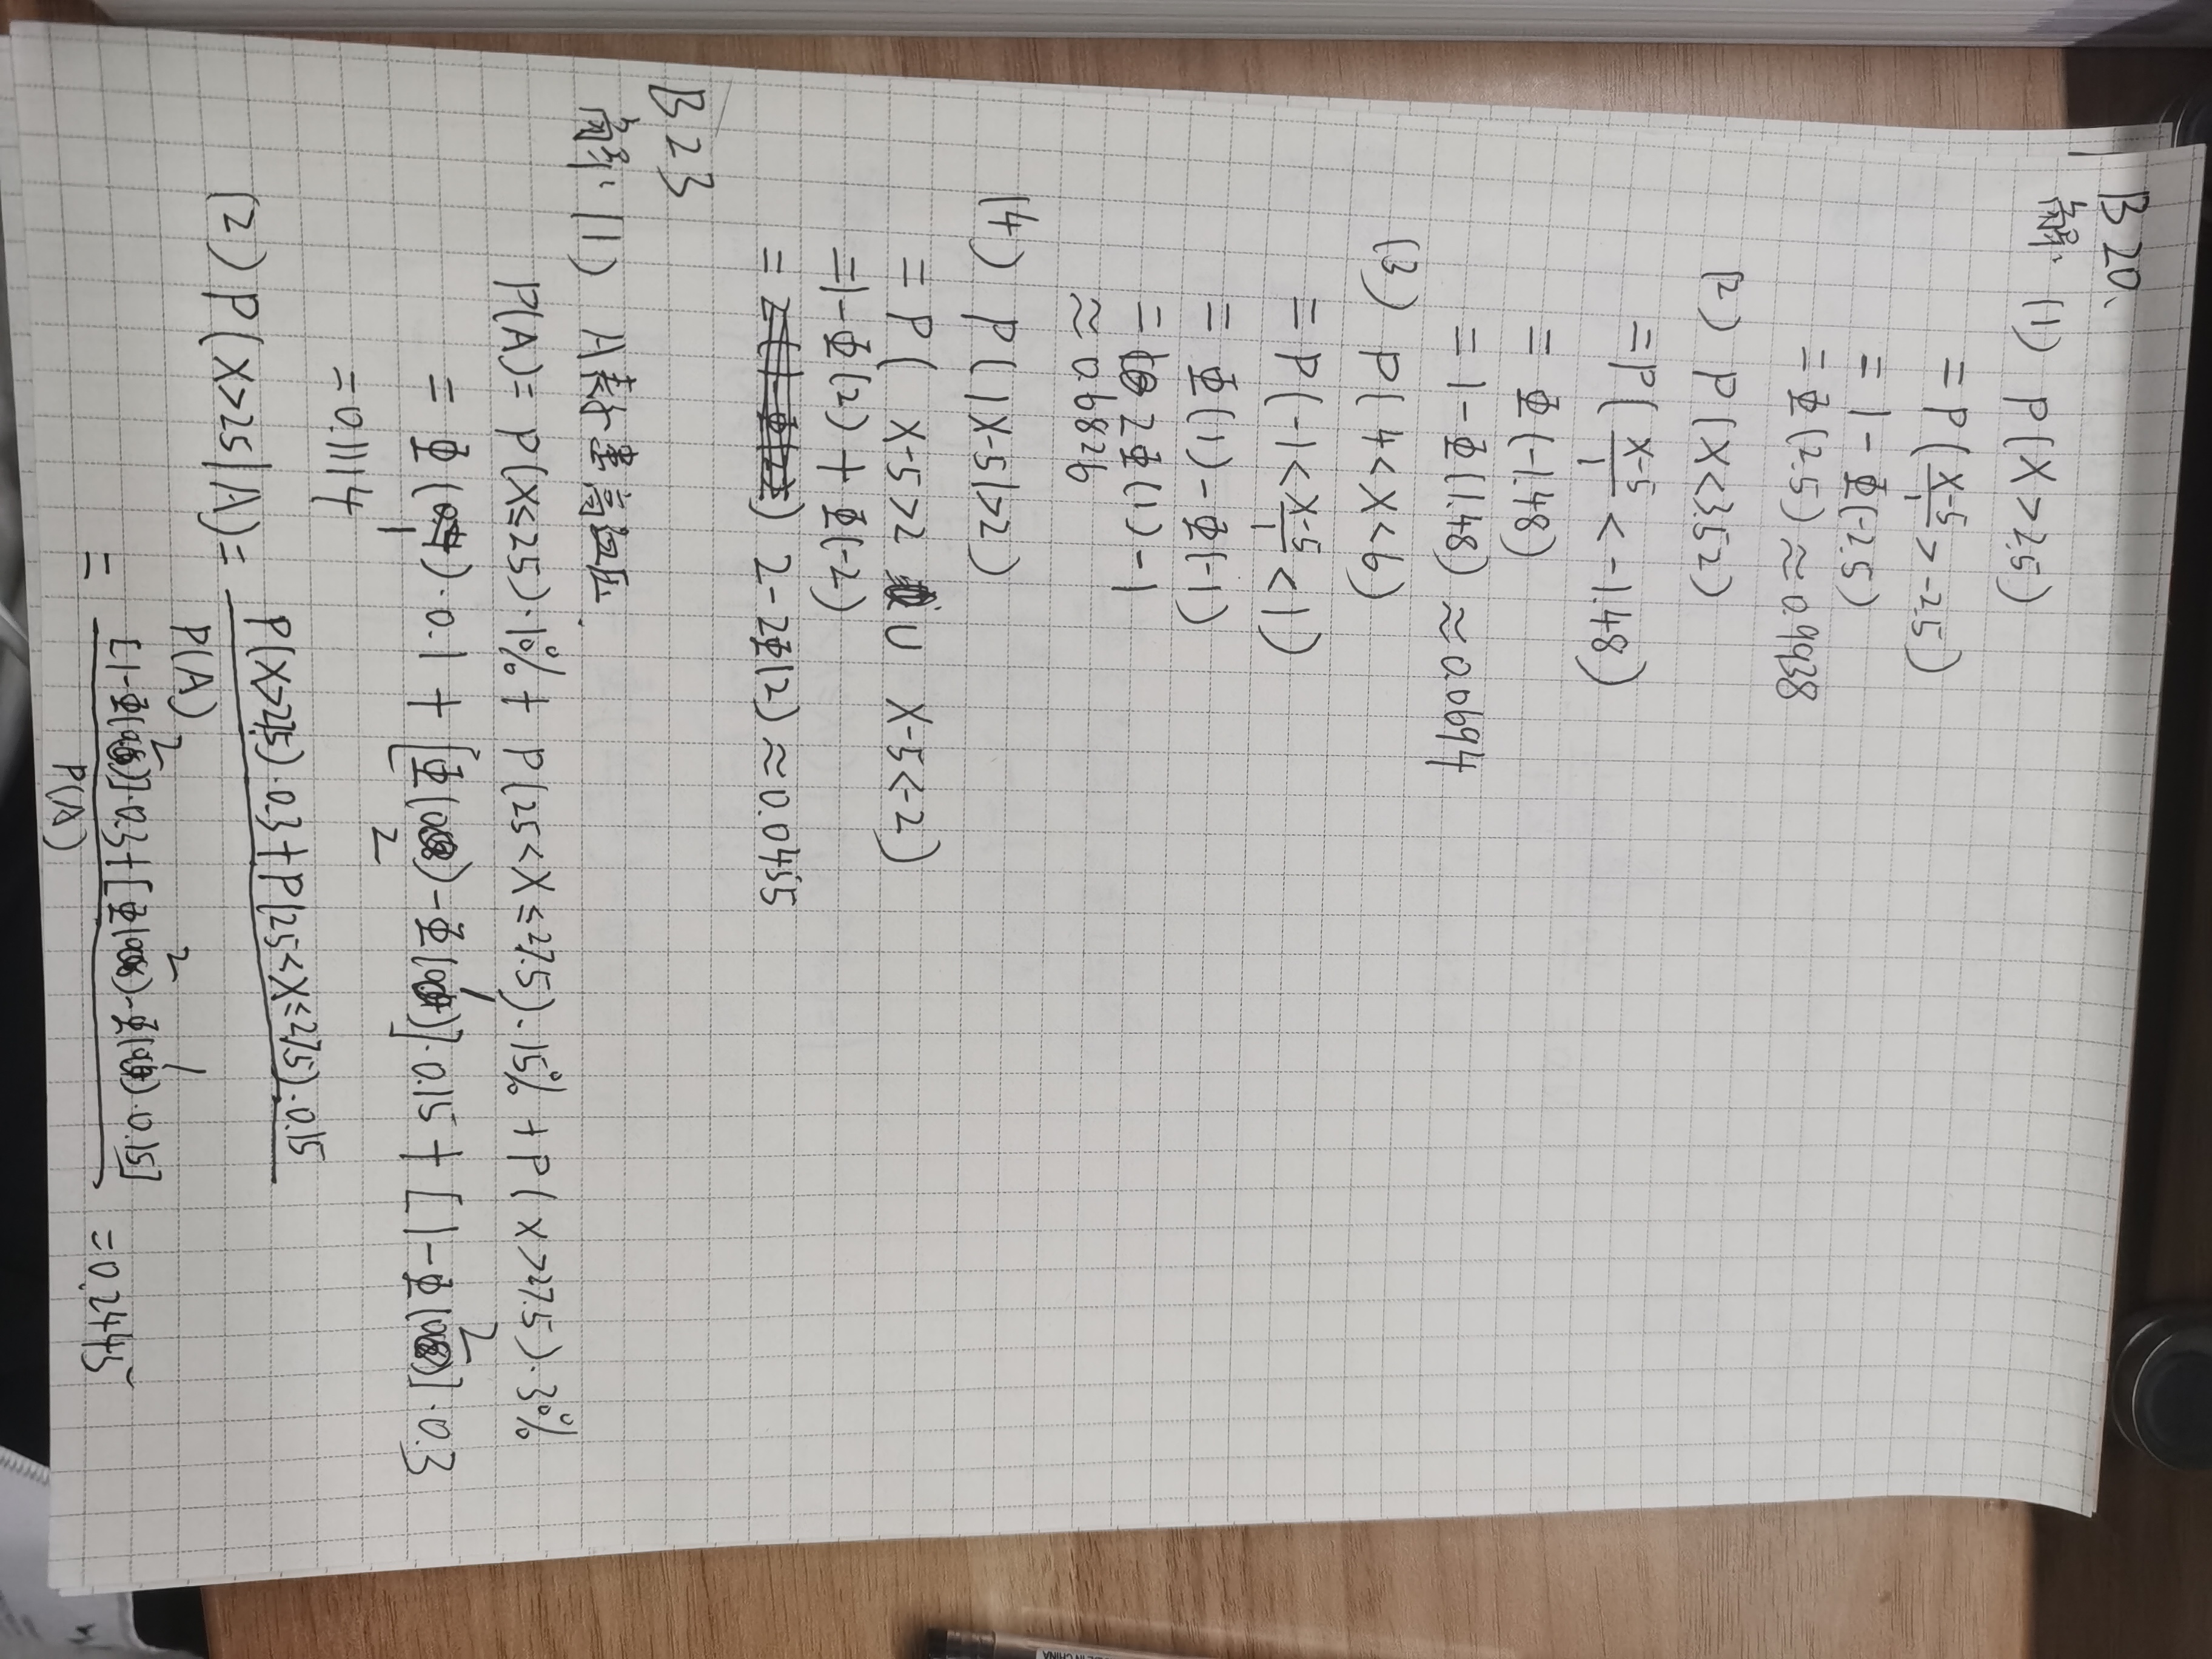 B 20.
解: (1) P(X>2.5)
= P(\frac{X-5}{1}>-2.5)
= 1-Φ(-2.5)
= Φ(2.5)≈0.9938
(2) P(X<3.52)
= P(\frac{X-5}{1}<-1.48)
= Φ(-1.48)
= 1-Φ(1.48)≈0.0694
(3) P(4<X<6)
= P(-1<\frac{X-5}{1}<1)
= Φ(1)-Φ(-1)
= 2Φ(1)-1
≈ 0.6826
(4) P(|X-5|>2)
= P( X-5>2 ∪ X-5<-2)
= 1-Φ(2)+Φ(-2)
= 2-2Φ(2)≈0.0455
B 23
解: (1) A表示需
P(A)= P(X≤25)·1%+ P(25<X≤27.5)·15%+ P(X>27.5)·3%
= Φ(1)·0.1+[Φ(2)-Φ(1)]·0.15+[1-Φ(2)]·0.3
= 0.1114
(2) P(X>25|A)= \frac{P(X>27.5)·0.3+P(25<X≤27.5)·0.15}{P(A)}
= \frac{[1-Φ(2)]·0.3+[Φ(2)-Φ(1)·0.15]}{P(A)} =0.2445